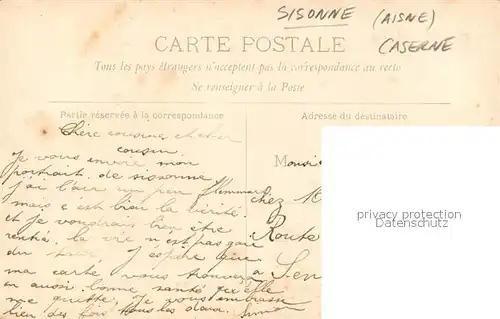 SISONNE (AISNE)
CASERNE
CARTE POSTALE
Tous les pays étrangers n'acceptent pas la correspondance au recto
Se renseigner à la Poste
Partie réservée à la correspondance
Adresse du destinataire
Chère cousine et cher
cousin.
Je vous envoie mon
portrait de sissonne
j'ai l'air un peu flemmard
mais c'est bien la vérité
et je voudrais bien être
rentré, la vie n'est pas gaie
du tout, J'espère que
ma carte vous trouvera
en aussi bonne santé qu'elle
me quitte, Je vous embrasse
bien des fois tous les deux.
Monsi
chez M
Route
a Sen
privacy protection
www.akpool.com